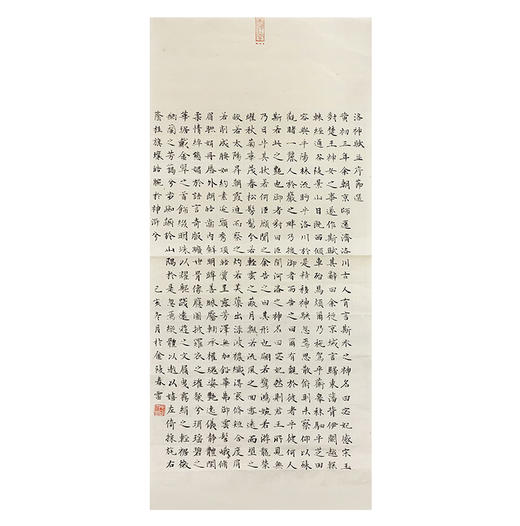 洛神賦並序節選
黃初三年余朝京師還濟洛川古人有言斯水之神名曰宓妃感宋玉
對楚王神女之事遂作斯賦其辭曰余從京域言歸東藩背伊闕越轘
轅經通谷陵景山日既西傾車殆馬煩爾乃稅駕乎蘅皋秣駟乎芝田
容與乎陽林流眄乎洛川於是精移神駭忽焉思散俯則未察仰以殊
觀睹一麗人於巖之畔乃援御者而告之曰爾有覿於彼者乎彼何人
斯若此之艷也御者對曰臣聞河洛之神名曰宓妃然則君王所見無
乃是乎其狀若何臣願聞之余告之曰其形也翩若驚鴻婉若游龍榮
曜秋菊華茂春松髣髴兮若輕雲之蔽月飄若流風之回雪遠而望之
皎若太陽昇朝霞迫而察之灼若芙蕖出淥波穠纖得衷修短合度肩
若削成腰如約素延頸秀項皓質呈露芳澤無加鉛華弗御雲髻峨修
眉聯娟丹唇外朗皓齒內鮮明眸善睞靨輔承權瑰姿艷逸儀靜體閑
柔情綽態媚於語言奇服曠世骨像應圖披羅衣之璀粲兮珥瑤碧之
華琚戴金翠之首飾綴明珠以耀軀踐遠遊之文履曳霧綃之輕裾微
幽蘭之芳藹兮步踟躕於山隅於是忽焉縱體以遨以嬉左倚採旄右
蔭桂旗攘皓腕於神滸兮
己亥冬月於金陵春雷